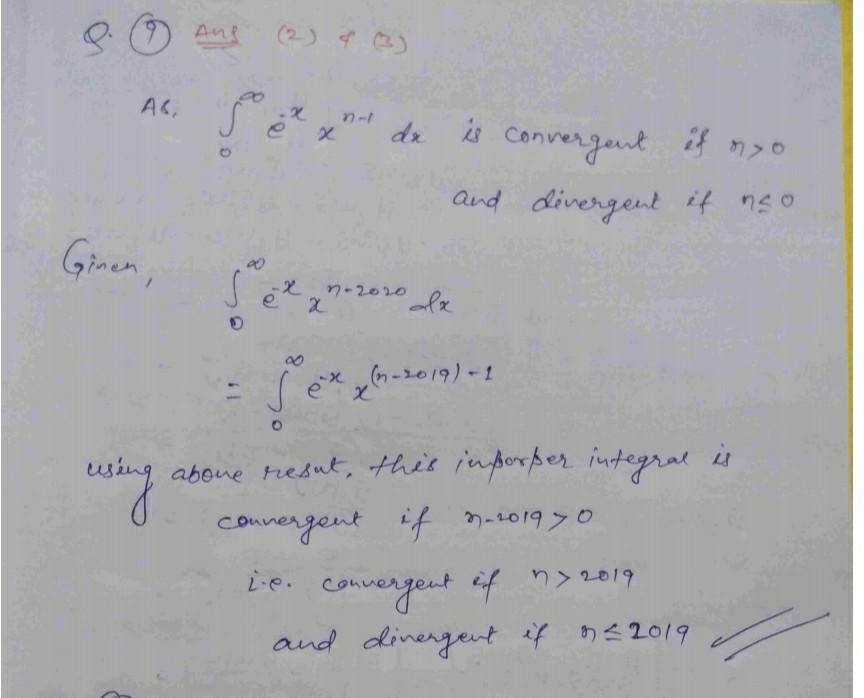 Q. (9) Ans (2) & (3)
As, ∫₀^∞ e^-x x^n-1 dx is convergent if n>0
and divergent if n≤0
Given, ∫₀^∞ e^-x x^n-2020 dx
= ∫₀^∞ e^-x x^(n-2019)-1
using above resut, this imporper integral is
convergent if n-2019>0
i.e. convergent if n>2019
and divergent if n≤2019